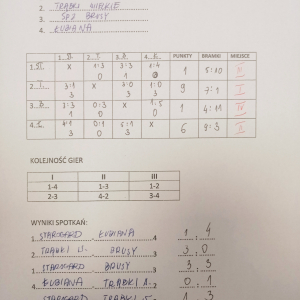 2. TRĄBKI WIELKIE
3. SAP BRUSY
4. ŁUBIANA
1. ST. 2. T. 3. B. 4. Ł. PUNKTY BRAMKI MIEJSCE
1. ST. X 1:3 3:3 1:4 1 5:10 III
0 1 0
2. T. 3:1 X 3:0 1:0 9 7:1 I
3 3 3
3. B. 3:3 0:3 X 1:5 1 4:11
1 0 0
4. Ł. 4:1 0:1 5:1 X 6 9:3 II
3 0 3
KOLEJNOŚĆ GIER
I II III
1-4 1-3 1-2
2-3 4-2 3-4
WYNIKI SPOTKAŃ:
1 STAROGARD - ŁUBIANA 4 1 : 4
2 TRĄBKI W. - BRUSY 3 3 : 0
1 STAROGARD BRUSY 3 3 : 3
4 ŁUBIANA TRĄBKI 2 0 : 1
STAROGARD TRĄBKI 1 : 3